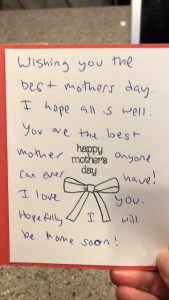 Wishing you the
best mothers day.
I hope all is well.
You are the best
mother anyone
happy
mother's
day
can ever have!
I love you.
Hopefully I will
be home soon!